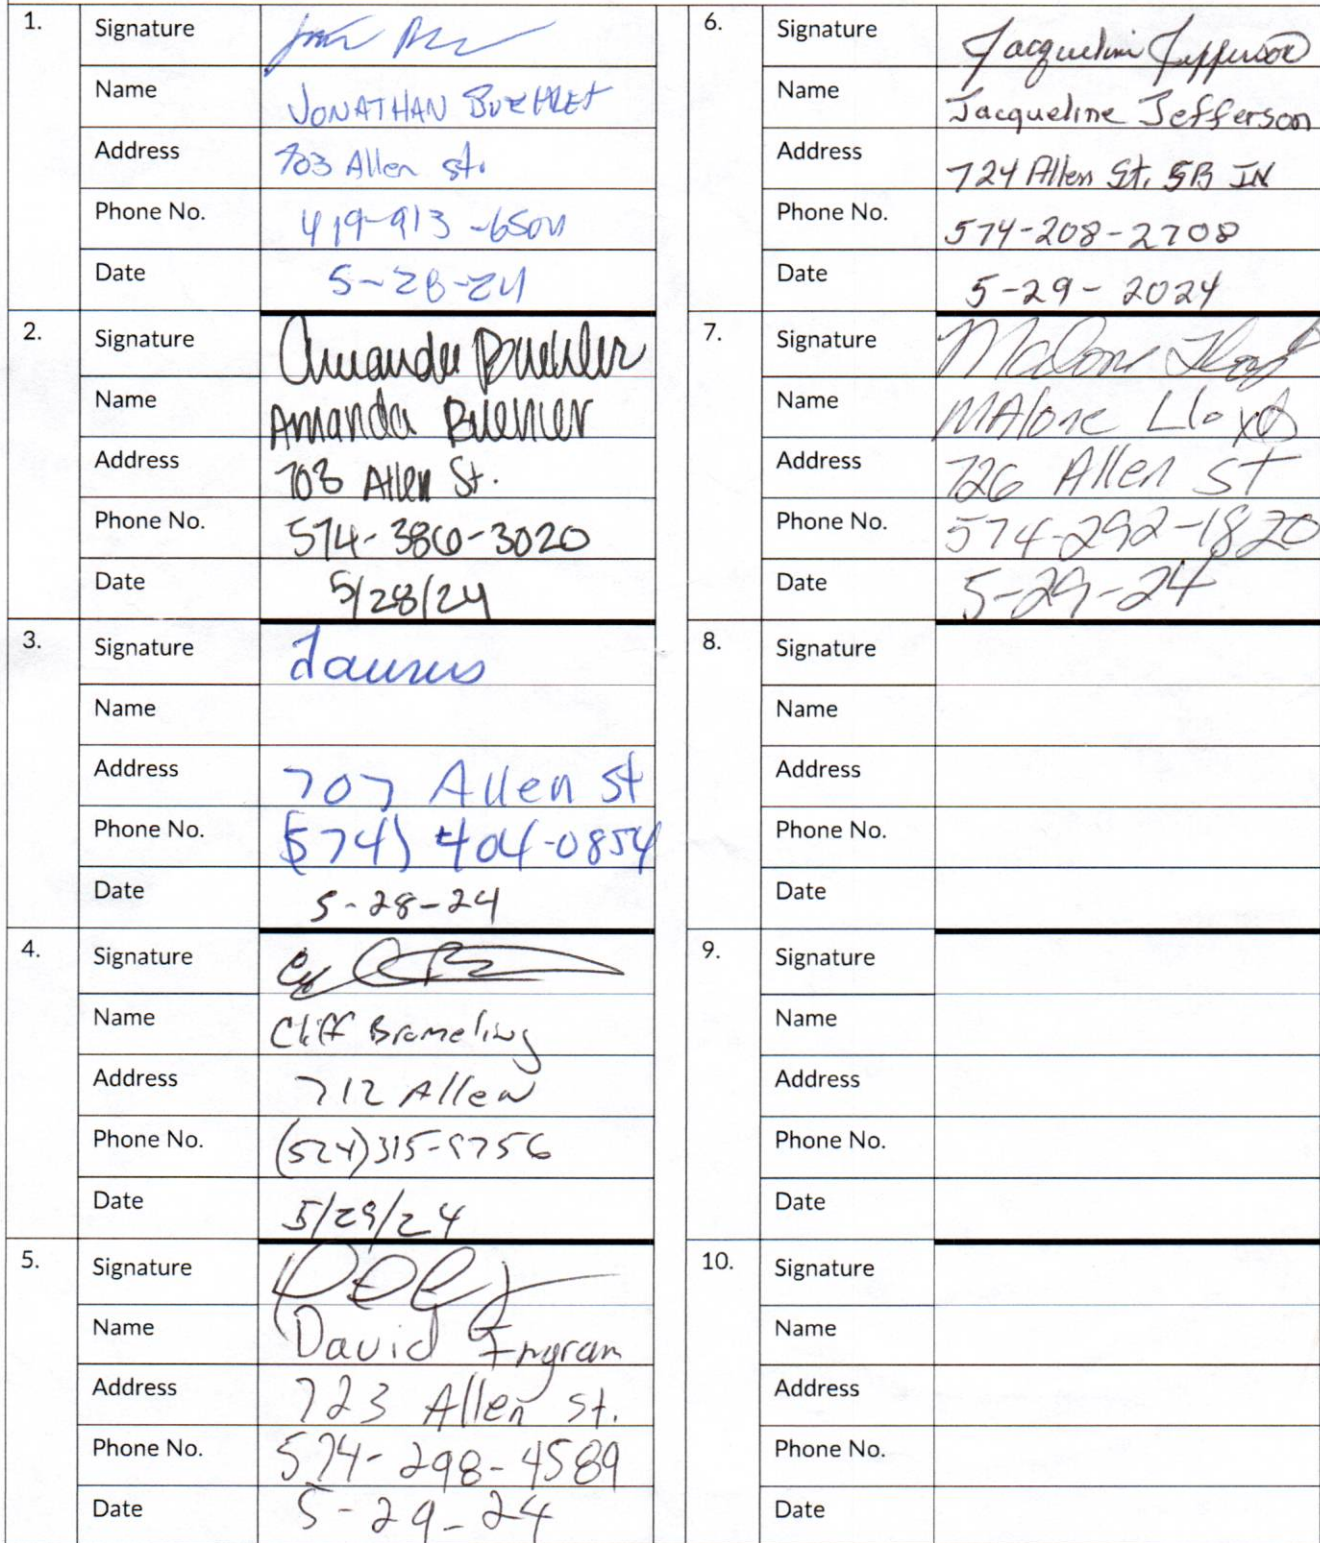 1.
Signature
Name
JONATHAN
Address 703 Allen St.
Phone No. 419-913-
Date 5-28-24
2.
Signature Amanda Buehler
Name Amanda Buehler
Address 703 Allen St.
Phone No. 574-386-3020
Date 5/28/24
3.
Signature
Name
Address 707 Allen St
Phone No. (574) 404-0854
Date 5-28-24
4.
Signature
Name Cliff Brameling
Address 712 Allen
Phone No.
Date 5/29/24
5.
Signature
Name David Ingram
Address 723 Allen St.
Phone No. 574-298-4589
Date 5-29-24
6.
Signature Jacqueline Jefferson
Name Jacqueline Jefferson
Address 724 Allen St. SB IN
Phone No. 574-208-2708
Date 5-29-2024
7.
Signature Malone Lloyd
Name MAlone Lloyd
Address 726 Allen St
Phone No. 574-292-1820
Date 5-29-24
8.
Signature
Name
Address
Phone No.
Date
9.
Signature
Name
Address
Phone No.
Date
10.
Signature
Name
Address
Phone No.
Date